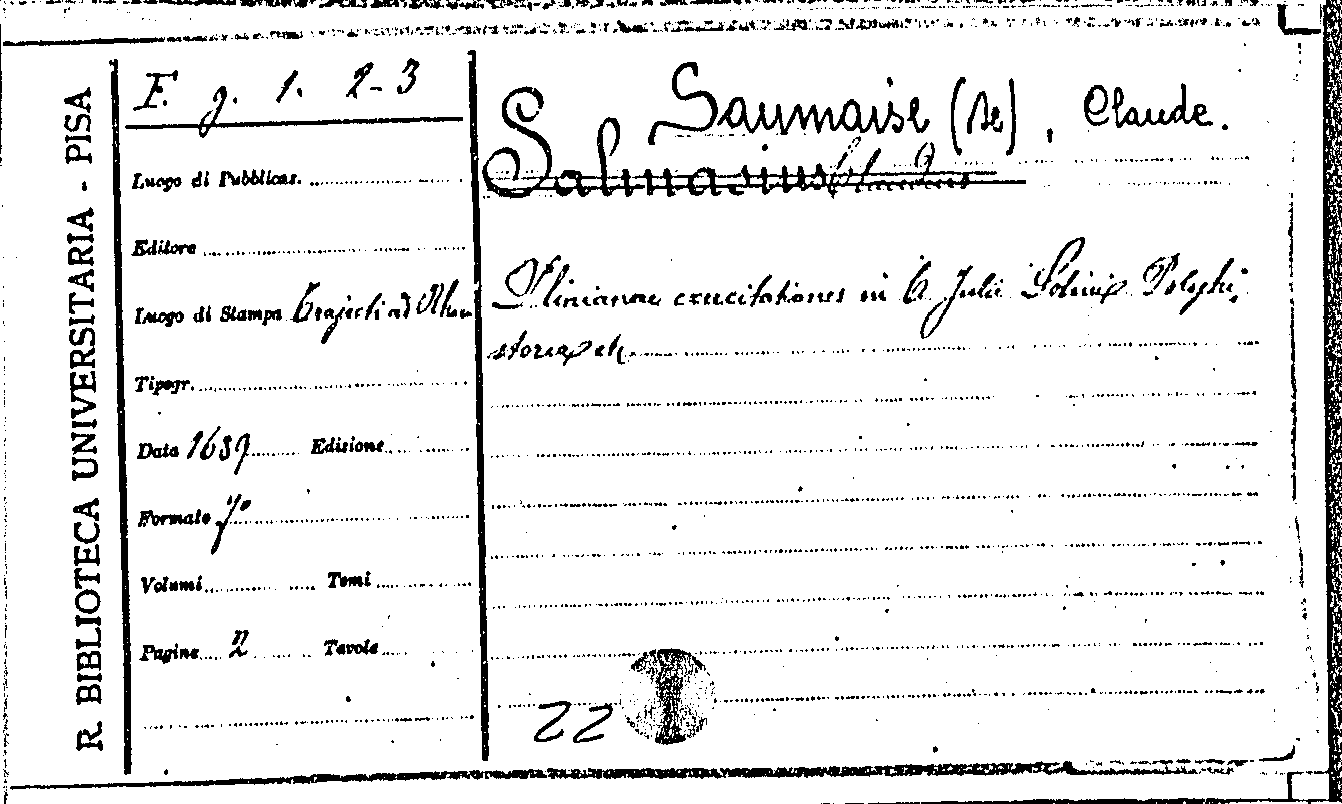 R. BIBLIOTECA UNIVERSITARIA - PISA
F. g. 1. 2-3
Luogo di Pubblicas.
Editore
Luogo di Stampa Trajecti ad Rhen
Tipogr.
Data 1689 Edisione
Formato fº
Volumi Tomi
Pagine 2 Tavole
Saumaise (de), Claude.
Salmasius Claudius
Plinianae exercitationes in C. Julii Solinis Polyhi,
storia
22